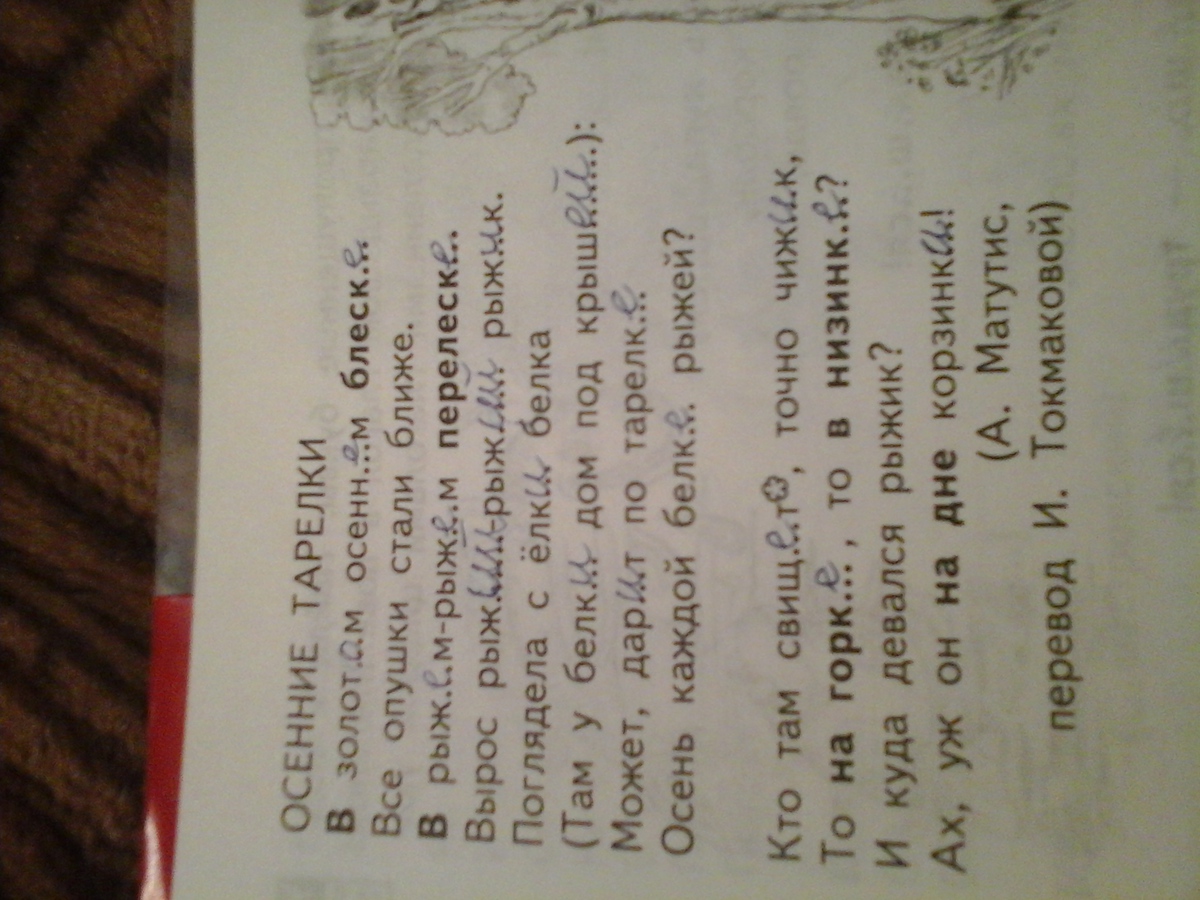 ОСЕННИЕ ТАРЕЛКИ
В золотом осеннем блеске
Все опушки стали ближе.
В рыжем-рыжем перелеске
Вырос рыжий-рыжий рыжик.
Поглядела с ёлки белка
(Там у белки дом под крышей):
Может, дарит по тарелке
Осень каждой белке рыжей?
Кто там свищет, точно чижик,
То на горке, то в низинке?
И куда девался рыжик?
Ах, уж он на дне корзинки!
(А. Матутис,
перевод И. Токмаковой)